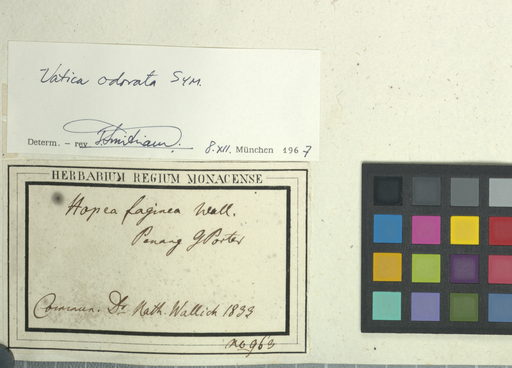 Vatica odorata SYM.
Determ. – rev.
8.XII. München 1967
HERBARIUM REGIUM MONACENSE
Hopea faginea Wall.
Penang G Porter
Commun. Dr. Nath. Wallich 1833
no 963